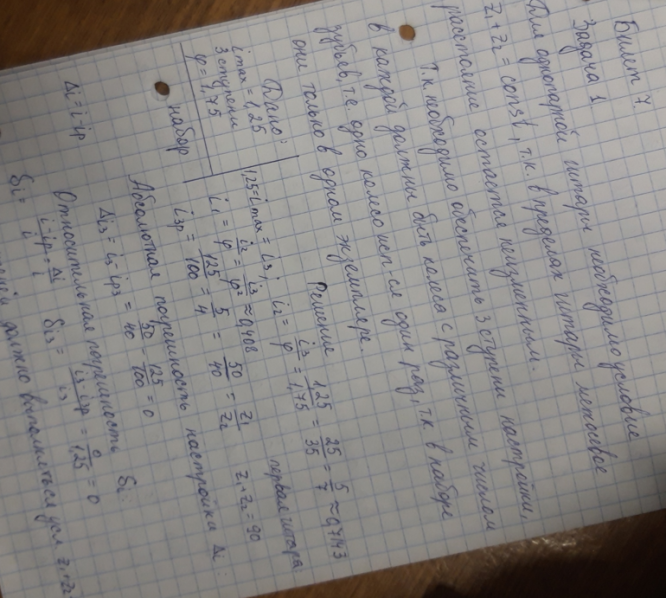 Билет 7
Задача 1
Для однопарной гитары необходимо условие
z₁+z₂ = const, т.к. в пределах гитары межосевое
расстояние остается неизменным.
Т.к. необходимо обеспечить 3 ступени настройки,
в каждой должны быть колеса с различным числом
зубьев, т.е. одно колесо исп-ся один раз, т.к. в наборе
они только в одном экземпляре.
Дано:
i max = 1,25
3 ступени
φ = 1,75
набор
Решение
1,25 = i max = i₃; i₂ = i₃/φ = 1,25/1,75 = 25/35 = 5/7 ≈ 0,7143
i₁ = i₂/φ = i₃/φ² ≈ 0,408 первая гитара
i₃р = 125/100 = 5/4 = 50/40 = z₁/z₂ z₁+z₂ = 90
Абсолютная погрешность настройки Δi:
Δi = i - iр Δi₃ = i₃ - iр₃ = 50/40 - 125/100 = 0
Относительная погрешность δi:
δi = i-iр/i = Δi/i δi₃ = i₃-iр/i₃ = 0/1,25 = 0
должно выполняться усл z₁+z₂